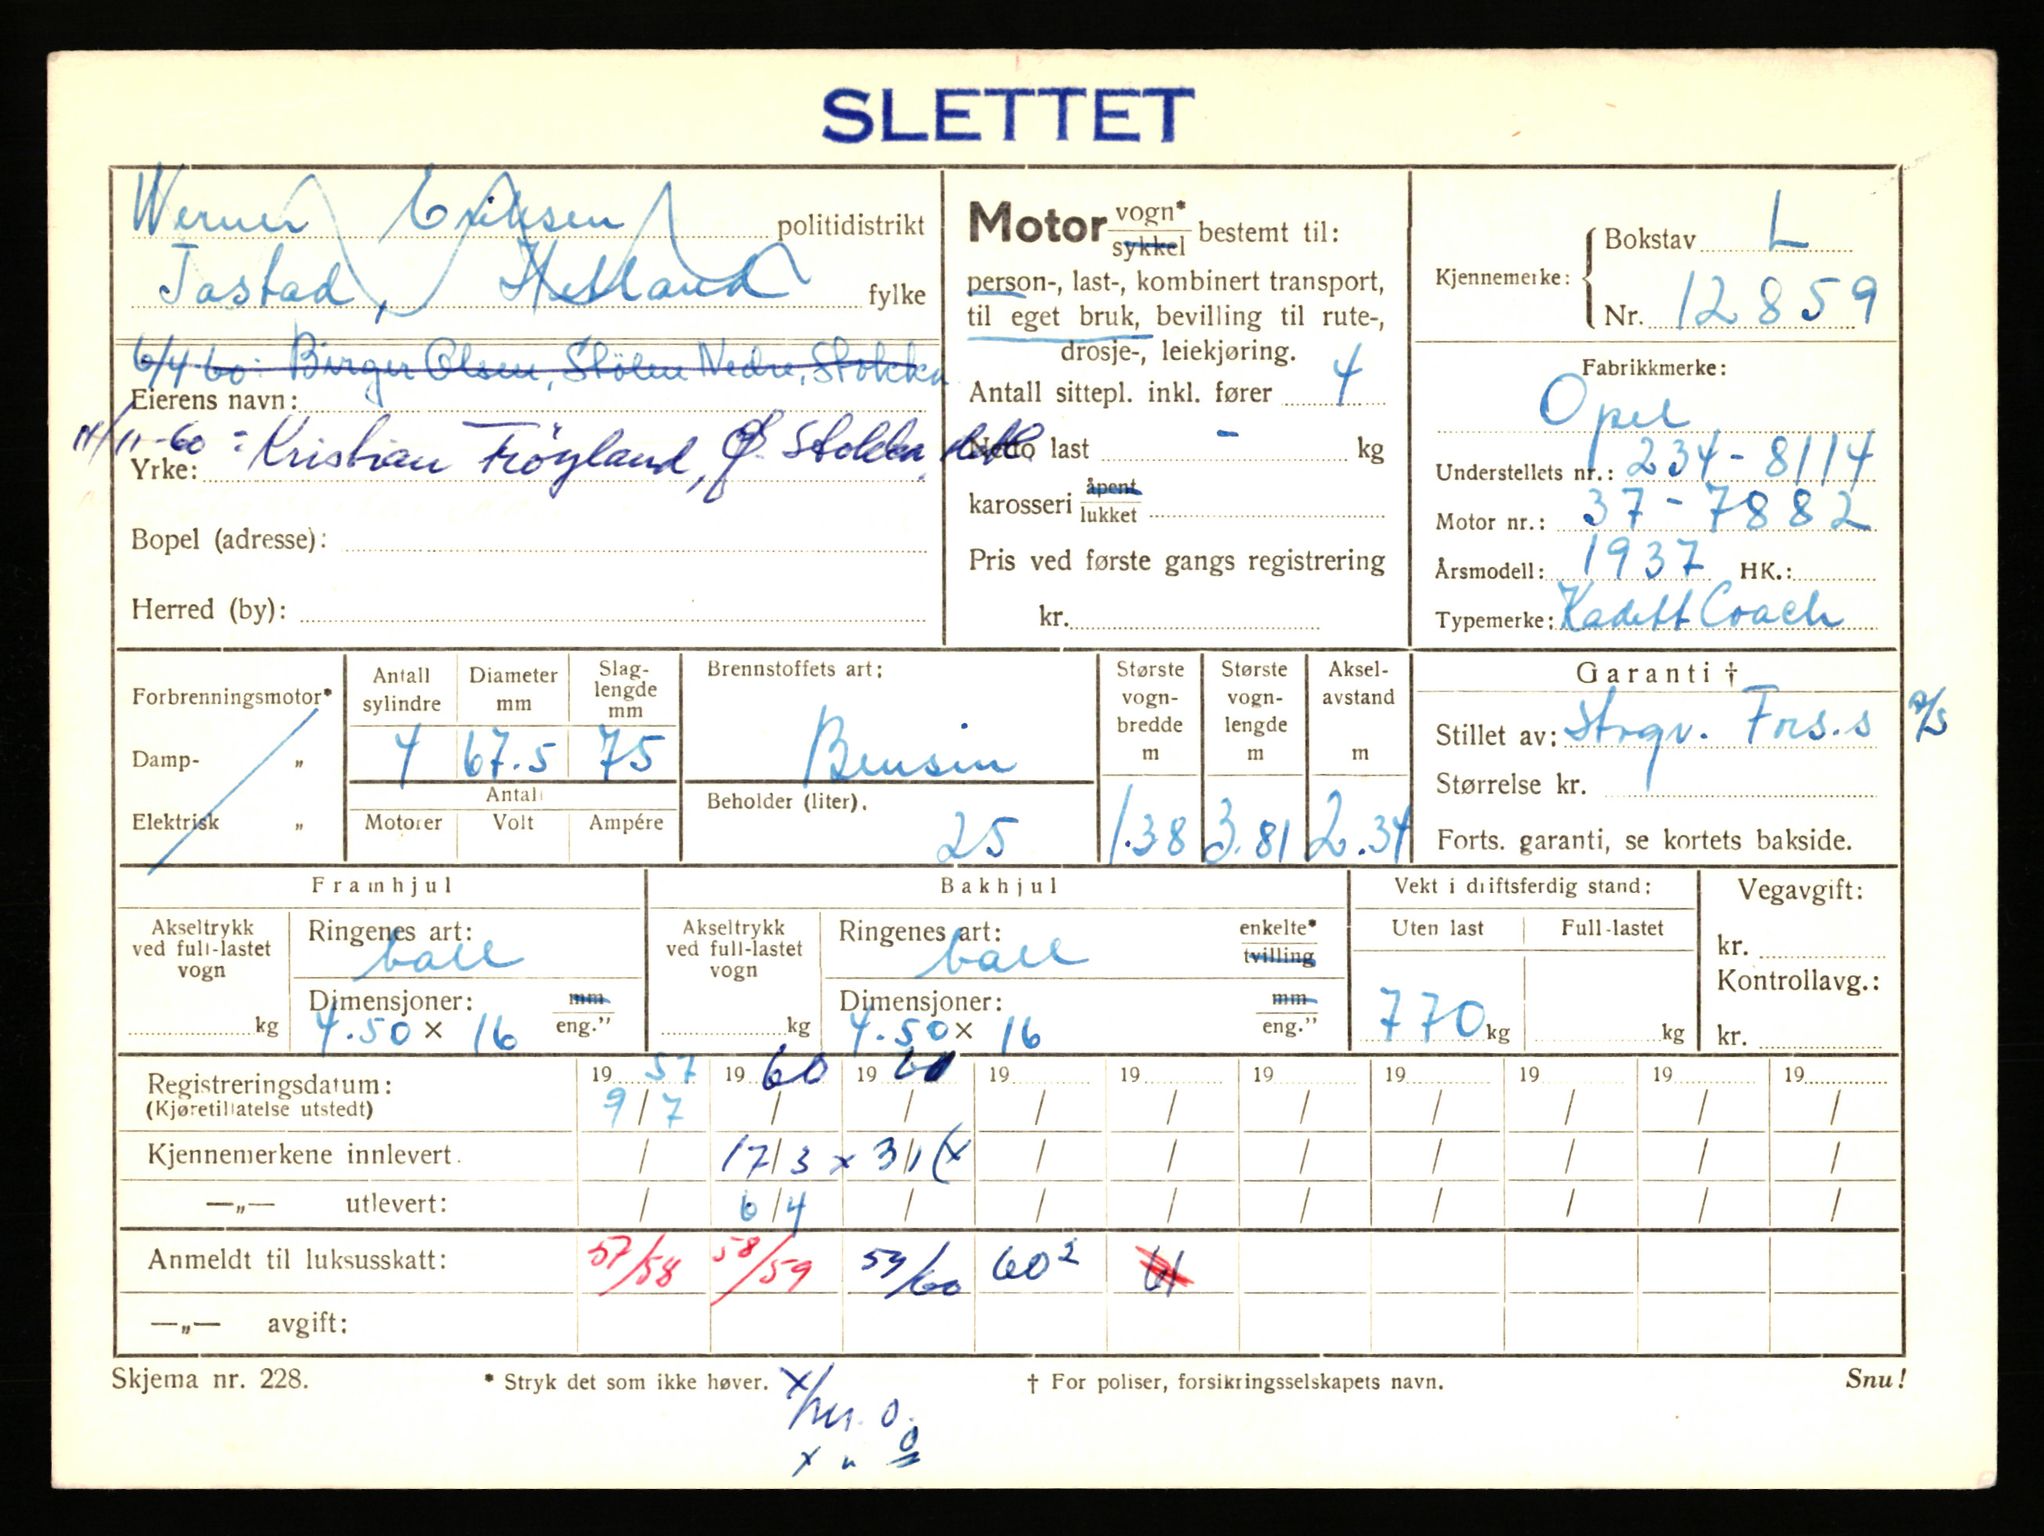 SLETTET
Werner Eriksen politidistrikt
Tastad, Hetland fylke
6/4 60: Birger Olsen, Stölen Nedre, Stokka
Eierens navn:
11/11-60 = Kristian Fröyland, Ø. Stokka,
Yrke:
Bopel (adresse):
Herred (by):
Motor vogn* sykkel bestemt til:
person-, last-, kombinert transport,
til eget bruk, bevilling til rute-,
drosje-, leiekjøring.
Antall sittepl. inkl. fører 4
Netto last - kg
karosseri åpent lukket
Pris ved første gangs registrering
kr.
Kjennemerke: Bokstav L
Nr. 12859
Fabrikkmerke:
Opel
Understellets nr.: 234-8114
Motor nr.: 37-7882
Årsmodell: 1937 HK.:
Typemerke: Kadett Coach
Forbrenningsmotor*
Damp- „
Elektrisk „
Antall sylindre 4
Diameter mm 67.5
Slaglengde mm 75
Antall
Motorer Volt Ampére
Brennstoffets art:
Bensin
Beholder (liter).
25
Største vogn-bredde m 1.38
Største vogn-lengde m 3.81
Aksel-avstand m 2.34
Garanti †
Stillet av: Strgv. Fors.s A/S
Størrelse kr.
Forts. garanti, se kortets bakside.
Framhjul
Akseltrykk ved full-lastet vogn kg
Ringenes art: ball
Dimensjoner: mm
4.50 x 16 eng.”
Bakhjul
Akseltrykk ved full-lastet vogn kg
Ringenes art: ball enkelte* tvilling
Dimensjoner: mm
4.50 x 16 eng.”
Vekt i driftsferdig stand:
Uten last Full-lastet
770 kg kg
Vegavgift:
kr.
Kontrollavg.:
kr.
Registreringsdatum: 19 57 19 60 19 60 19 19 19 19 19 19 19
(Kjøretillatelse utstedt) 9/7 / / / / / / / / /
Kjennemerkene innlevert. / 17/3 x 3/1 (x / / / / / / /
—„— utlevert: / 6/4 / / / / / / / /
Anmeldt til luksusskatt: 57/58 58/59 59/60 60² 61
—„— avgift:
Skjema nr. 228. * Stryk det som ikke høver. † For poliser, forsikringsselskapets navn. Snu!
x/
x „ 0